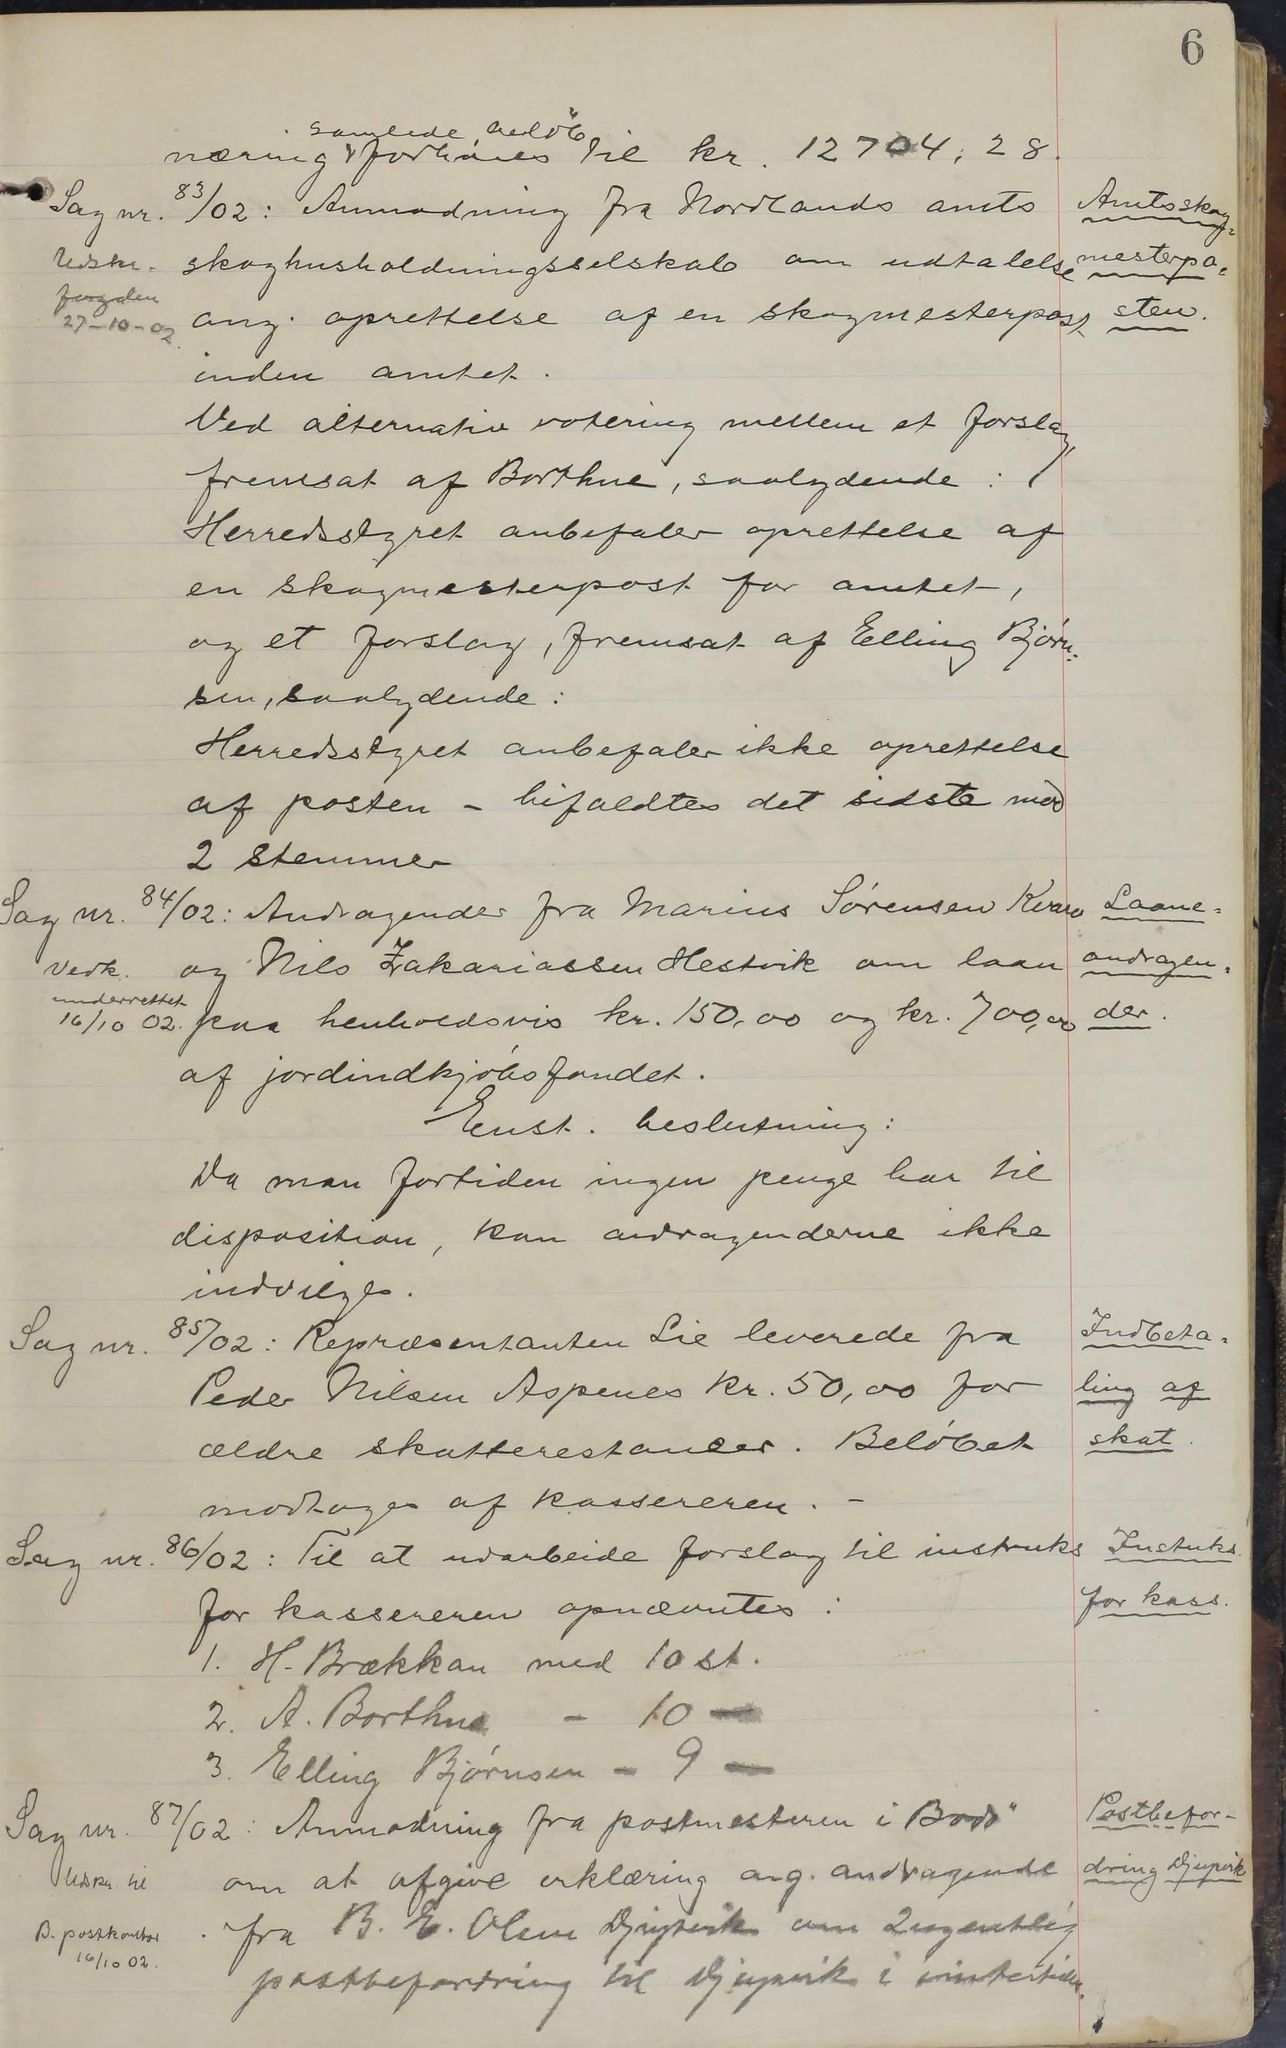 6
samlede beløb
næring & forhøies til kr. 12704,28.
Sag nr. 83/02: Anmodning fra Nordlands amts
skoghusholdningsselskab om udtalelse
ang. oprettelse af en skogmesterpost
inden amtet.
Udskr.
fogden
27-10-02
Amtsskog-
mesterpo-
sten.
Ved alternativ votering mellem et forslag,
fremsat af Borthne, saalydende:
Herredsstyret anbefaler oprettelse af
en skogmesterpost for amtet,
og et forslag, fremsat af Elling Bjørn-
sen, saalydende:
Herredsstyret anbefaler ikke oprettelse
af posten - bifaldtes det sidste mod
2 stemmer
Sag nr. 84/02: Andragender fra Marius Sørensen
og Nils Zakariassen Hestvik om laan
paa henholdsvis kr. 150,00 og kr. 700,00
af jordindkjøbsfondet.
Vedk.
underrettet
16/10 02.
Laane-
andragen-
der.
Enst. beslutning:
Da man fortiden ingen penge har til
disposition, kan andragenderne ikke
indvilges.
Sag nr. 85/02: Repræsentanten Lie leverede fra
Peder Nilsen Aspenes kr. 50,00 for
ældre skatterestancer. Beløbet
modtages af kassereren. -
Indbeta-
ling af
skat.
Sag nr. 86/02: Til at udarbeide forslag til instruks
for kassereren opnævntes:
Instuks.
for kass.
1. H. Brækkan med 10 st.
2. A. Borthne - 10 -
3. Elling Bjørnsen - 9 -
Sag nr. 87/02: Anmodning fra postmesteren i Bodø
om at afgive erklæring ang. andragende
fra B. E. Olsen Djupvik om 2 ugentlig
postbefordring til Djupvik i vintertiden.
Udskr. til
B. postkontor
16/10 02.
Postbefor-
dring Djupvik